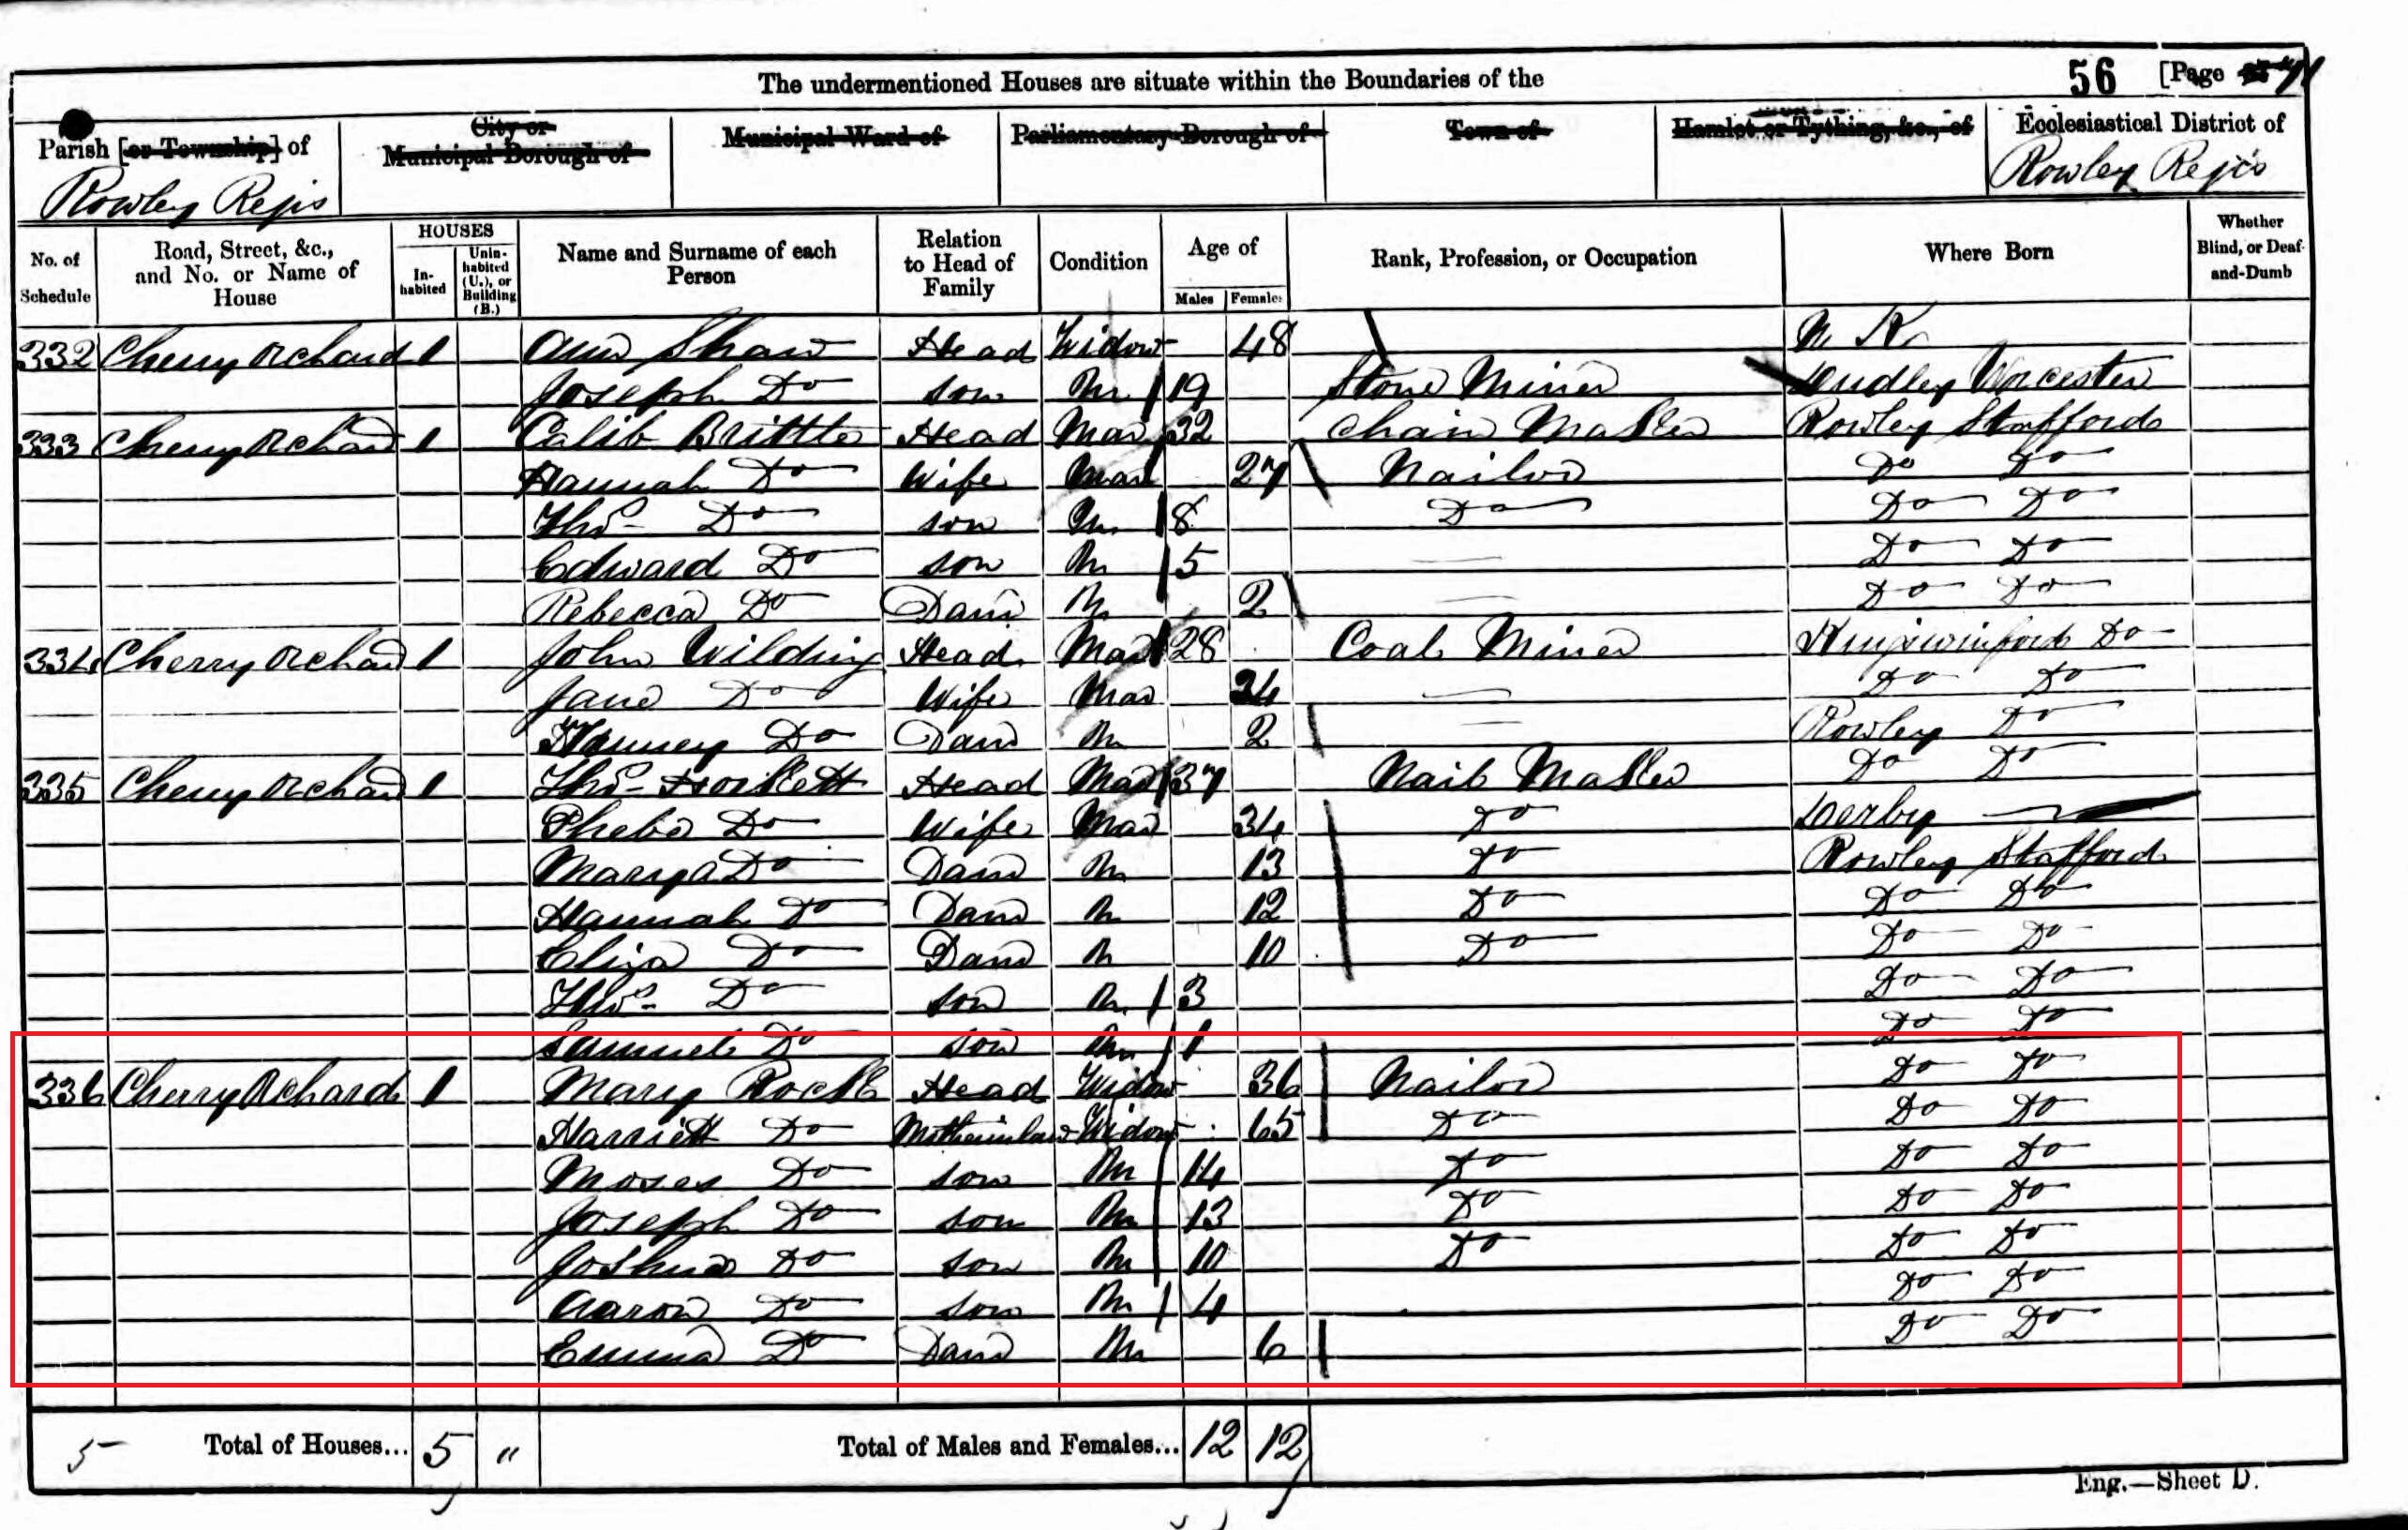 The undermentioned Houses are situate within the Boundaries of the
56 [Page 71
Parish [or Township] of Rowley Regis
City or Municipal Borough of
Municipal Ward of
Parliamentary Borough of
Town of
Hamlet or Tything, &c., of
Ecclesiastical District of Rowley Regis
No. of Schedule
Road, Street, &c., and No. or Name of House
HOUSES
In-habited
Unin-habited (U.), or Building (B.)
Name and Surname of each Person
Relation to Head of Family
Condition
Age of
Males
Females
Rank, Profession, or Occupation
Where Born
Whether Blind, or Deaf-and-Dumb
332 Cherry Orchard 1 Ann Shaw Head Widow 48 N. K.
Joseph Do son Un 19 Stone Miner Dudley Worcester
333 Cherry Orchard 1 Calib Brittle Head Mar 32 Chain Maker Rowley Stafford
Hannah Do Wife Mar 27 Nailor Do Do
Thos Do son Un 8 Do Do Do
Edward Do son Un 5 Do Do
Rebecca Do Daur Un 2 Do Do
334 Cherry Orchard 1 John Wilding Head Mar 28 Coal Miner Kingswinford Do
Jane Do Wife Mar 24 Do Do
Do Daur Un 2 Rowley Do
335 Cherry Orchard 1 Thos Head Mar 37 Nail Maker Do Do
Phebe Do Wife Mar 34 Do Derby
Do Daur Un 13 Do Rowley Stafford
Hannah Do Daur Un 12 Do Do Do
Eliza Do Daur Un 10 Do Do Do
Thos Do son Un 3 Do Do
Samuel Do son Un 1 Do Do
336 Cherry Orchard 1 Mary Rock Head Widow 36 Nailor Do Do
Harriett Do Motherinlaw Widow 65 Do Do Do
Moses Do son Un 14 Do Do Do
Joseph Do son Un 13 Do Do Do
Joshua Do son Un 10 Do Do Do
Aaron Do son Un 4 Do Do
Emma Do Daur Un 6 Do Do
5 Total of Houses... 5 " Total of Males and Females... 12 12
Eng.—Sheet D.